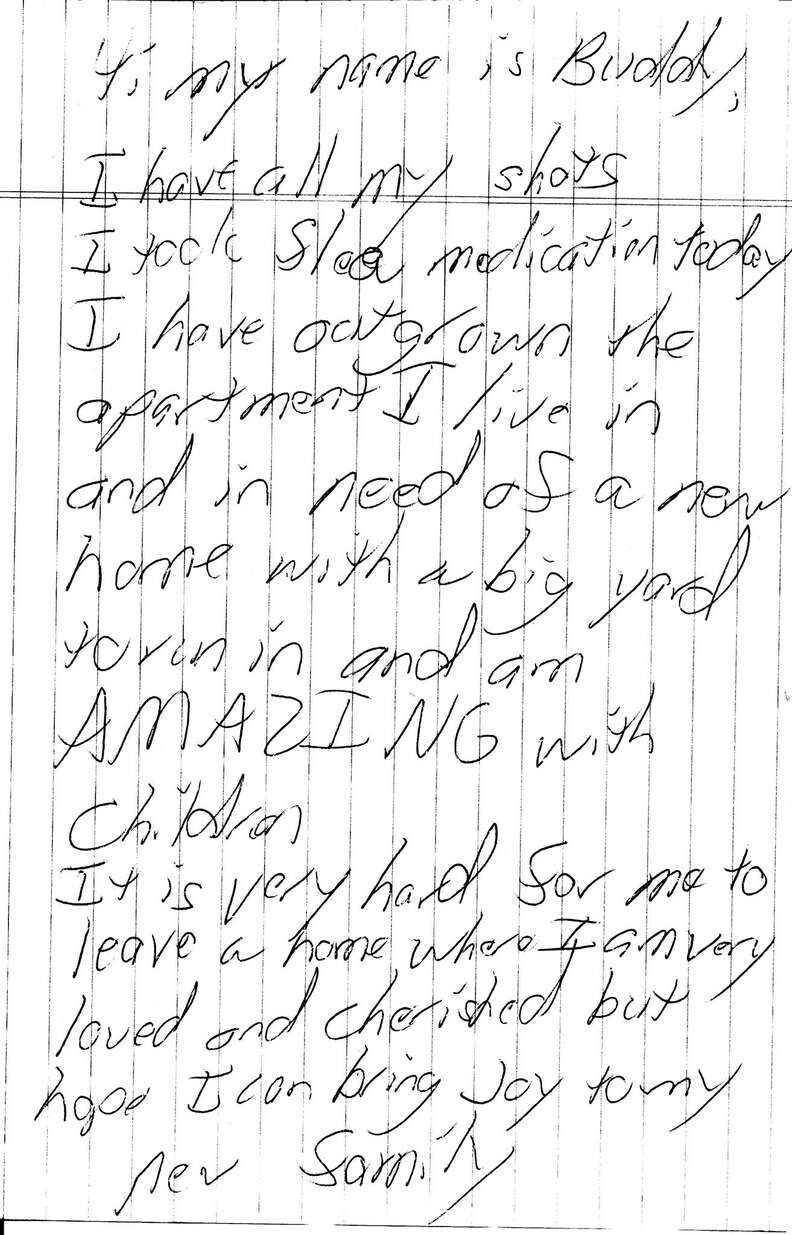 Hi my name is Buddy,
I have all my shots
I took flea medication today
I have outgrown the
apartment I live in
and in need of a new
home with a big yard
to run in and am
AMAZING with
children
It is very hard for me to
leave a home where I am very
loved and cherished but
hope I can bring Joy to my
new family